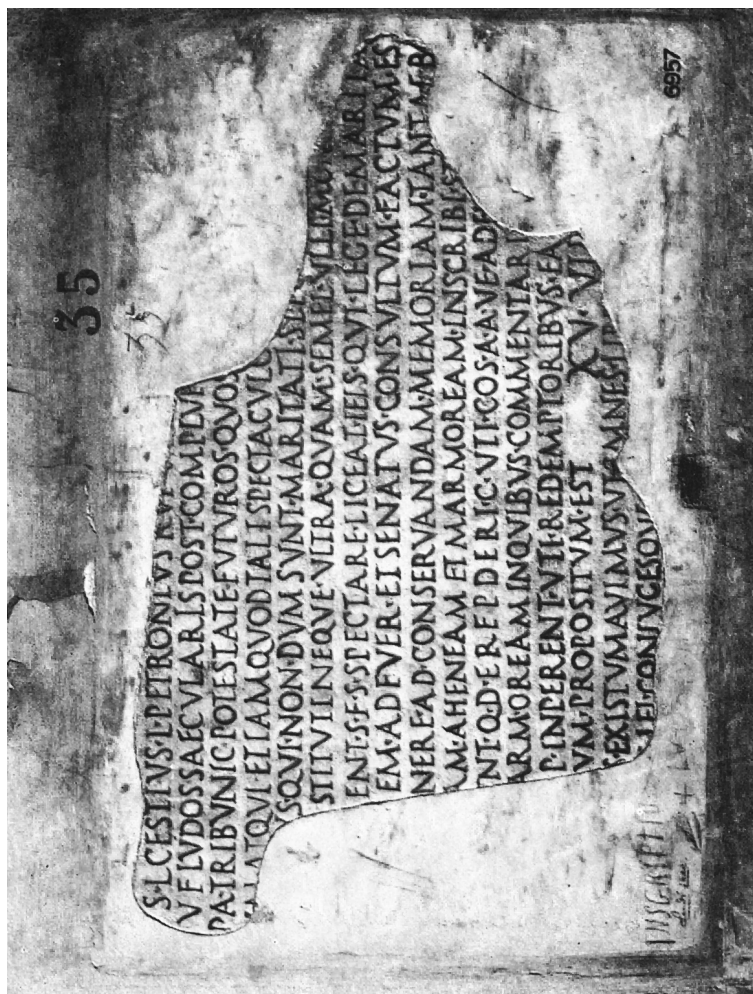 S·L·CESTIVS·L·PETRONIVS·RVF
V·F·LVDOS·SAECVLARIS·POST·COMPLVR
PA·TRIBVNIC·POTESTATE·FVTVROS·QVOS
LAT·QVI·ETIAM·QVOD·TALI·SPECTACVLO
S·QVI·NONDVM·SVNT·MARITATI·S
STITVTI·NEQVE·VLTRA·QVAM·SEMEL·VLLI·MO
ENT·S·F·S·SPECTARE·LICEAT·IEIS·QVI·LEGE·DE·MARITA
EM·ADFVER·EI·SENATVS·CONSVLTVM·FACTVM·ES
NERE·AD·CONSERVANDAM·MEMORIAM·TANTAE·B
M·AHENEAM·ET·MARMOREAM·INSCRIBI
NT·Q·D·E·R·F·P·D·E·R·I·C·VTI·COS·A·A·VE·AD
ARMOREAM·IN·QVIBVS·COMMENTARI
P·INDERENT·VTI·REDEMPTORIBVS·EA
VM·PROPOSITVM·EST XV·VI
S·EXISTVMAVIMVS·VT·OMNES·LI
S·IEI·CONIVGESQV
35
35
6957